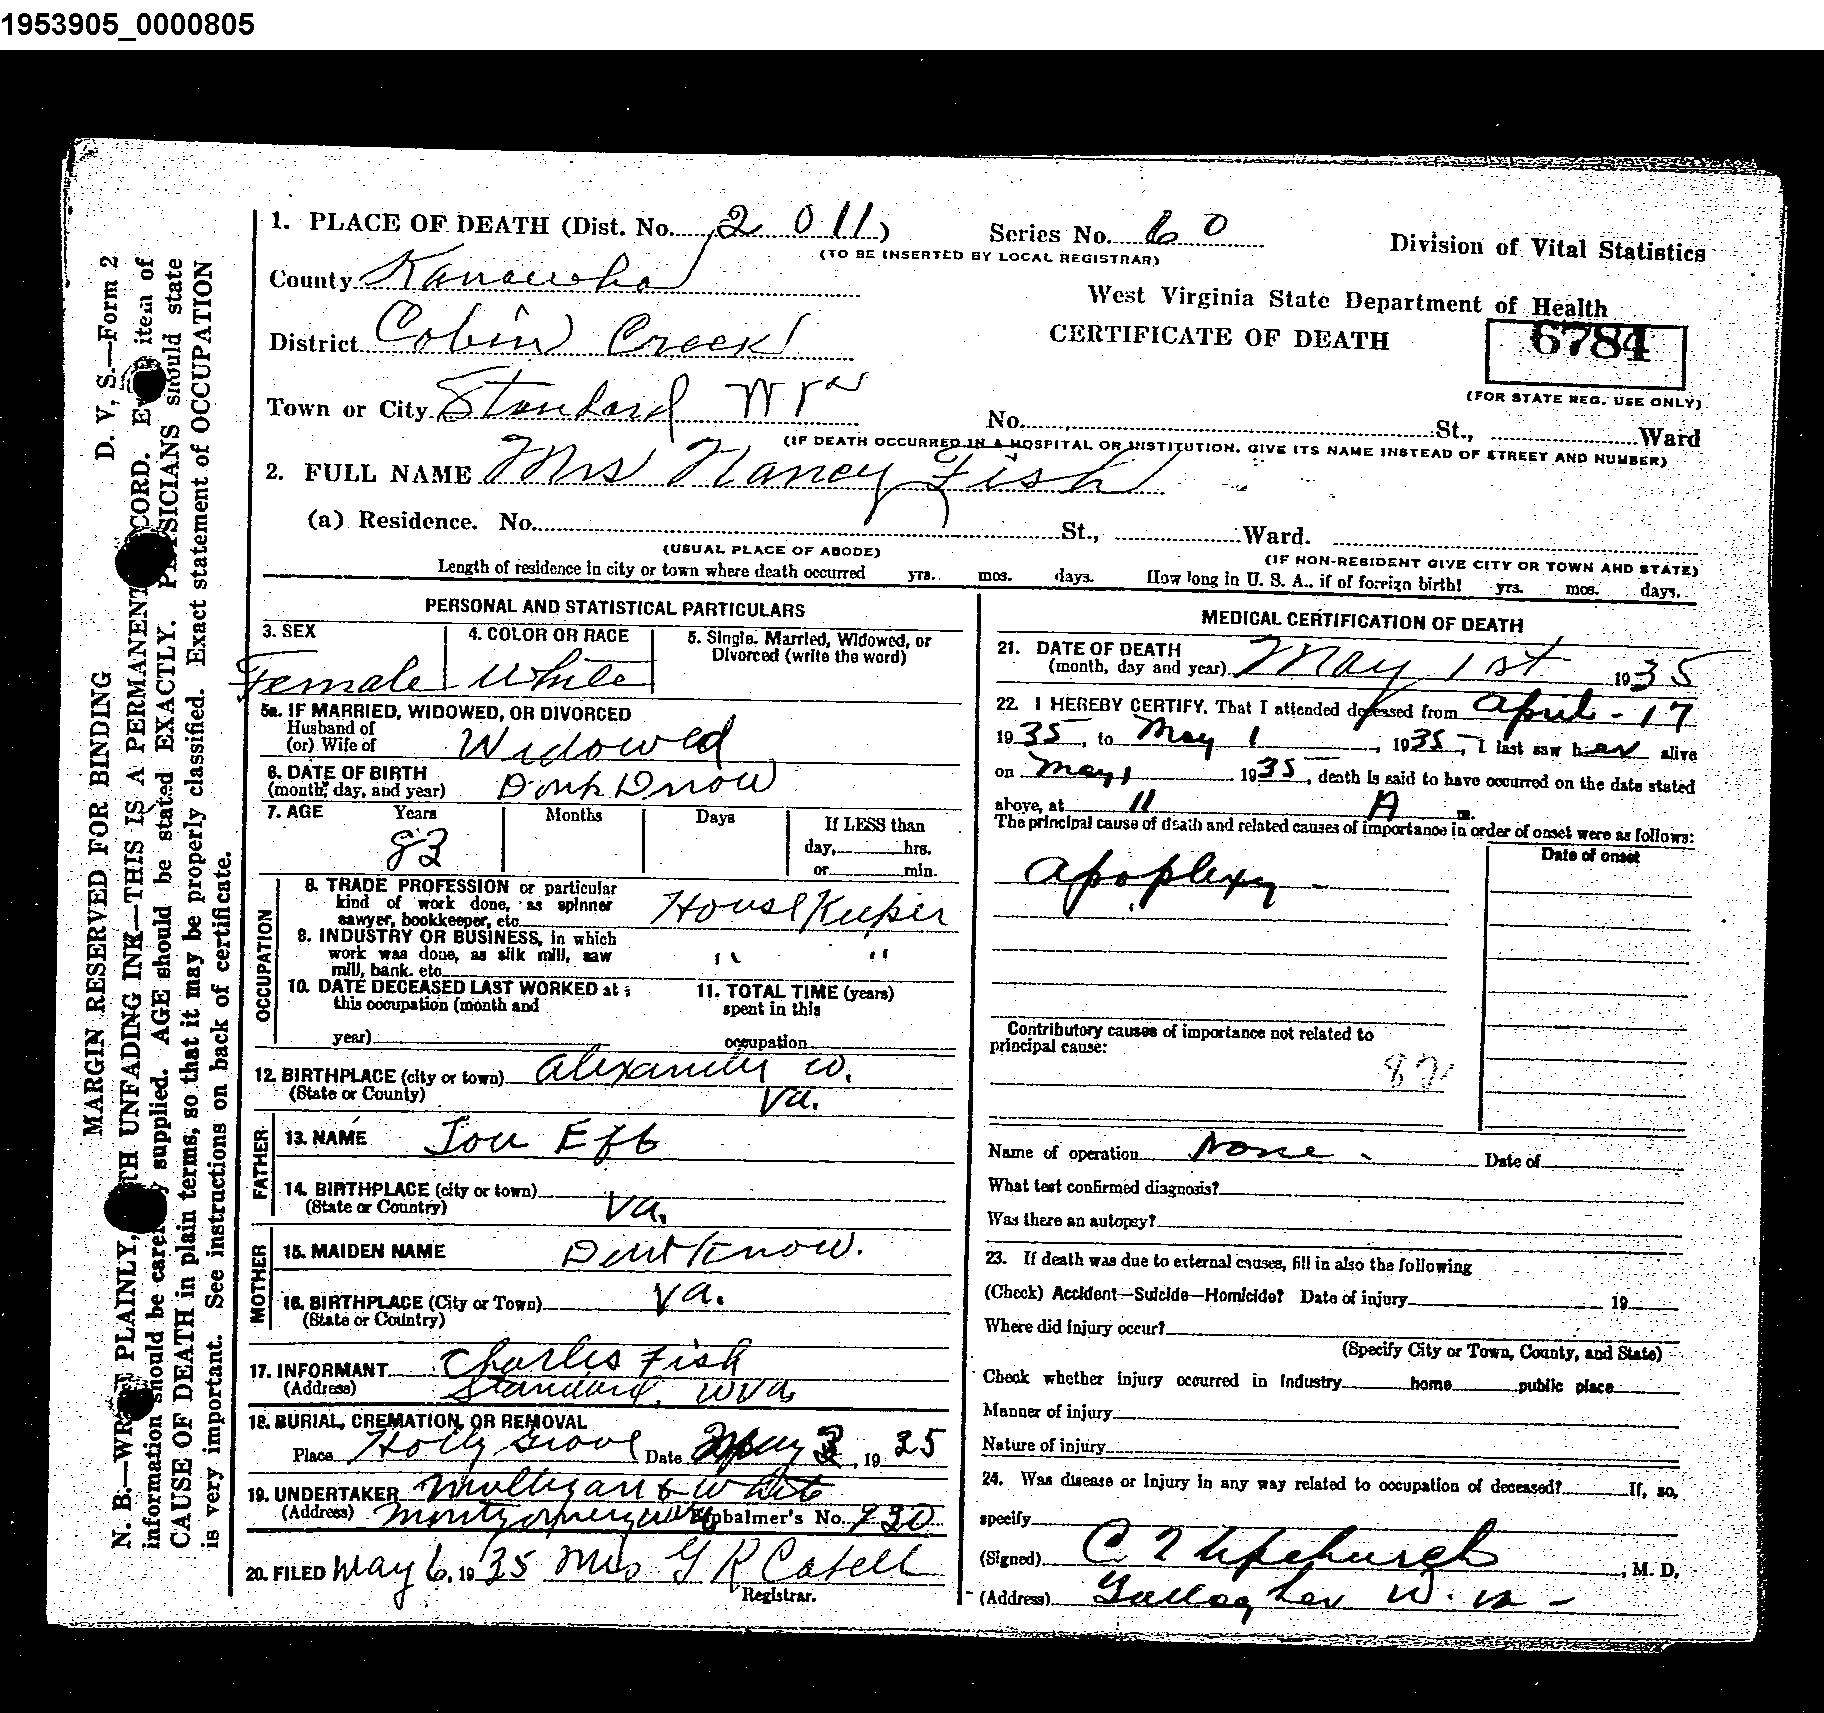 1953905_0000805
1. PLACE OF DEATH (Dist. No. 2011)
Series No. 60
Division of Vital Statistics
(TO BE INSERTED BY LOCAL REGISTRAR)
County Kanawha
West Virginia State Department of Health
District Cobin Creek
CERTIFICATE OF DEATH
6784
(FOR STATE REG. USE ONLY)
Town or City Standard W Va
No. St., Ward
(IF DEATH OCCURRED IN A HOSPITAL OR INSTITUTION, GIVE ITS NAME INSTEAD OF STREET AND NUMBER)
2. FULL NAME Mrs Nancy Fish
(a) Residence. No. St., Ward.
(USUAL PLACE OF ABODE) (IF NON-RESIDENT GIVE CITY OR TOWN AND STATE)
Length of residence in city or town where death occurred yrs. mos. days. How long in U. S. A., if of foreign birth? yrs. mos. days.
D. V. S.—Form 2
MARGIN RESERVED FOR BINDING
N. B.—WRITE PLAINLY, WITH UNFADING INK—THIS IS A PERMANENT RECORD. Every item of
information should be carefully supplied. AGE should be stated EXACTLY. PHYSICIANS should state
CAUSE OF DEATH in plain terms, so that it may be properly classified. Exact statement of OCCUPATION
is very important. See instructions on back of certificate.
PERSONAL AND STATISTICAL PARTICULARS
3. SEX
Female
4. COLOR OR RACE
White
5. Single, Married, Widowed, or
Divorced (write the word)
5a. IF MARRIED, WIDOWED, OR DIVORCED
Husband of
(or) Wife of Widowed
6. DATE OF BIRTH
(month, day, and year) Dont Dnow
7. AGE Years Months Days If LESS than
83
day, hrs.
or min.
OCCUPATION
8. TRADE PROFESSION or particular
kind of work done, as spinner
sawyer, bookkeeper, etc. House Keeper
9. INDUSTRY OR BUSINESS, in which
work was done, as silk mill, saw
mill, bank, etc. " "
10. DATE DECEASED LAST WORKED at
this occupation (month and
year)
11. TOTAL TIME (years)
spent in this
occupation
12. BIRTHPLACE (city or town) Alexander Co.
(State or County) Va.
FATHER
13. NAME Jou Eff
14. BIRTHPLACE (city or town)
(State or Country) Va.
MOTHER
15. MAIDEN NAME Dont Know.
16. BIRTHPLACE (City or Town) Va.
(State or Country)
17. INFORMANT Charles Fish
(Address) Standard, W Va
18. BURIAL, CREMATION, OR REMOVAL
Place Holly Grove Date May 3, 1935
19. UNDERTAKER Mulligan & White
(Address) Montgomery W Va Embalmer's No. 930
20. FILED May 6, 1935 Mrs G R Catell
Registrar.
MEDICAL CERTIFICATION OF DEATH
21. DATE OF DEATH
(month, day and year) May 1st 1935
22. I HEREBY CERTIFY, That I attended deceased from April - 17
1935, to May 1, 1935, I last saw her alive
on May 1 1935, death is said to have occurred on the date stated
above, at 11 A m.
The principal cause of death and related causes of importance in order of onset were as follows:
Date of onset
Apoplexy -
Contributory causes of importance not related to
principal cause:
82
Name of operation None - Date of
What test confirmed diagnosis?
Was there an autopsy?
23. If death was due to external causes, fill in also the following
(Check) Accident—Suicide—Homicide? Date of injury 19
Where did injury occur?
(Specify City or Town, County, and State)
Check whether injury occurred in industry home public place
Manner of injury
Nature of injury
24. Was disease or injury in any way related to occupation of deceased? If, so,
specify
(Signed) C T Upchurch, M. D.
(Address) Gallagher W. Va -